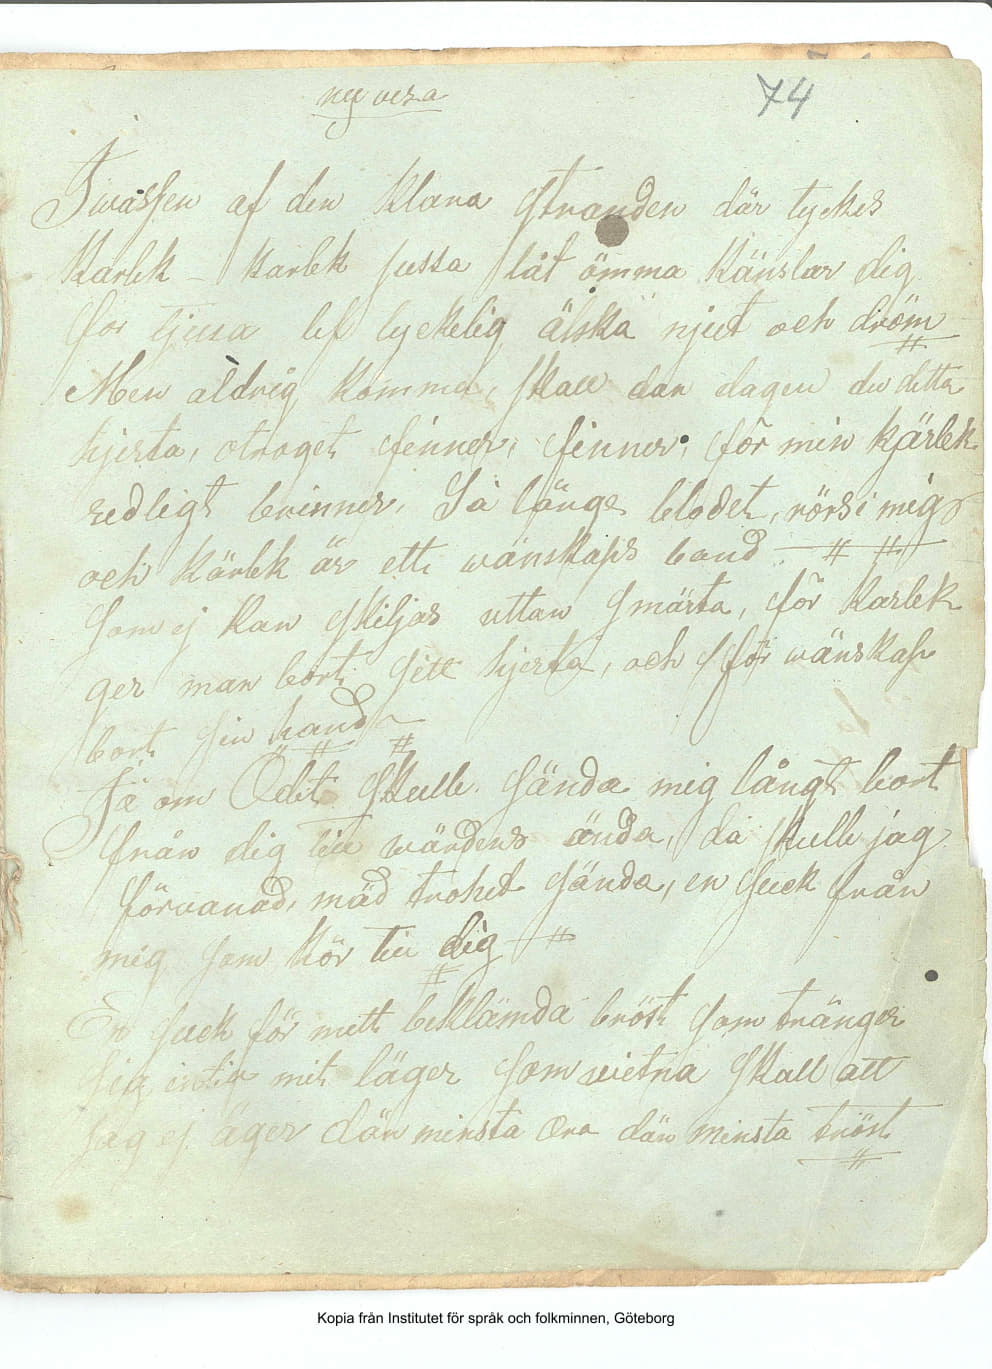 ny visa
74
I wassen af den klara stranden där tyckes
Karlek karlek sussa låt ömma känslar dig
för tjusa lef lyckelig älska njut och dröm
Men aldrig komma, skall dan dagen du detta
hjerta, otroget finner, finner, för min kjärlek
redligt brinner, Så länge blodet, rörs i mig
och kärlek är ett wänskaps band
Som ej kan skiljas uttan smärta, för karlek
ger man bort sitt hjerta, och för wänskap
bort sin hand
Ja om Ödet skulle sända mig långt bort
från dig till wärdens ända, då skulle jag
förvanad, mäd trohet sända, en suck från
mig som kör till dig
En suck för mitt beklämda bröst som tränger
sig mit läger som wietna skall att
jag ej äger dän minsta dän minsta tröst
Kopia från Institutet för språk och folkminnen, Göteborg